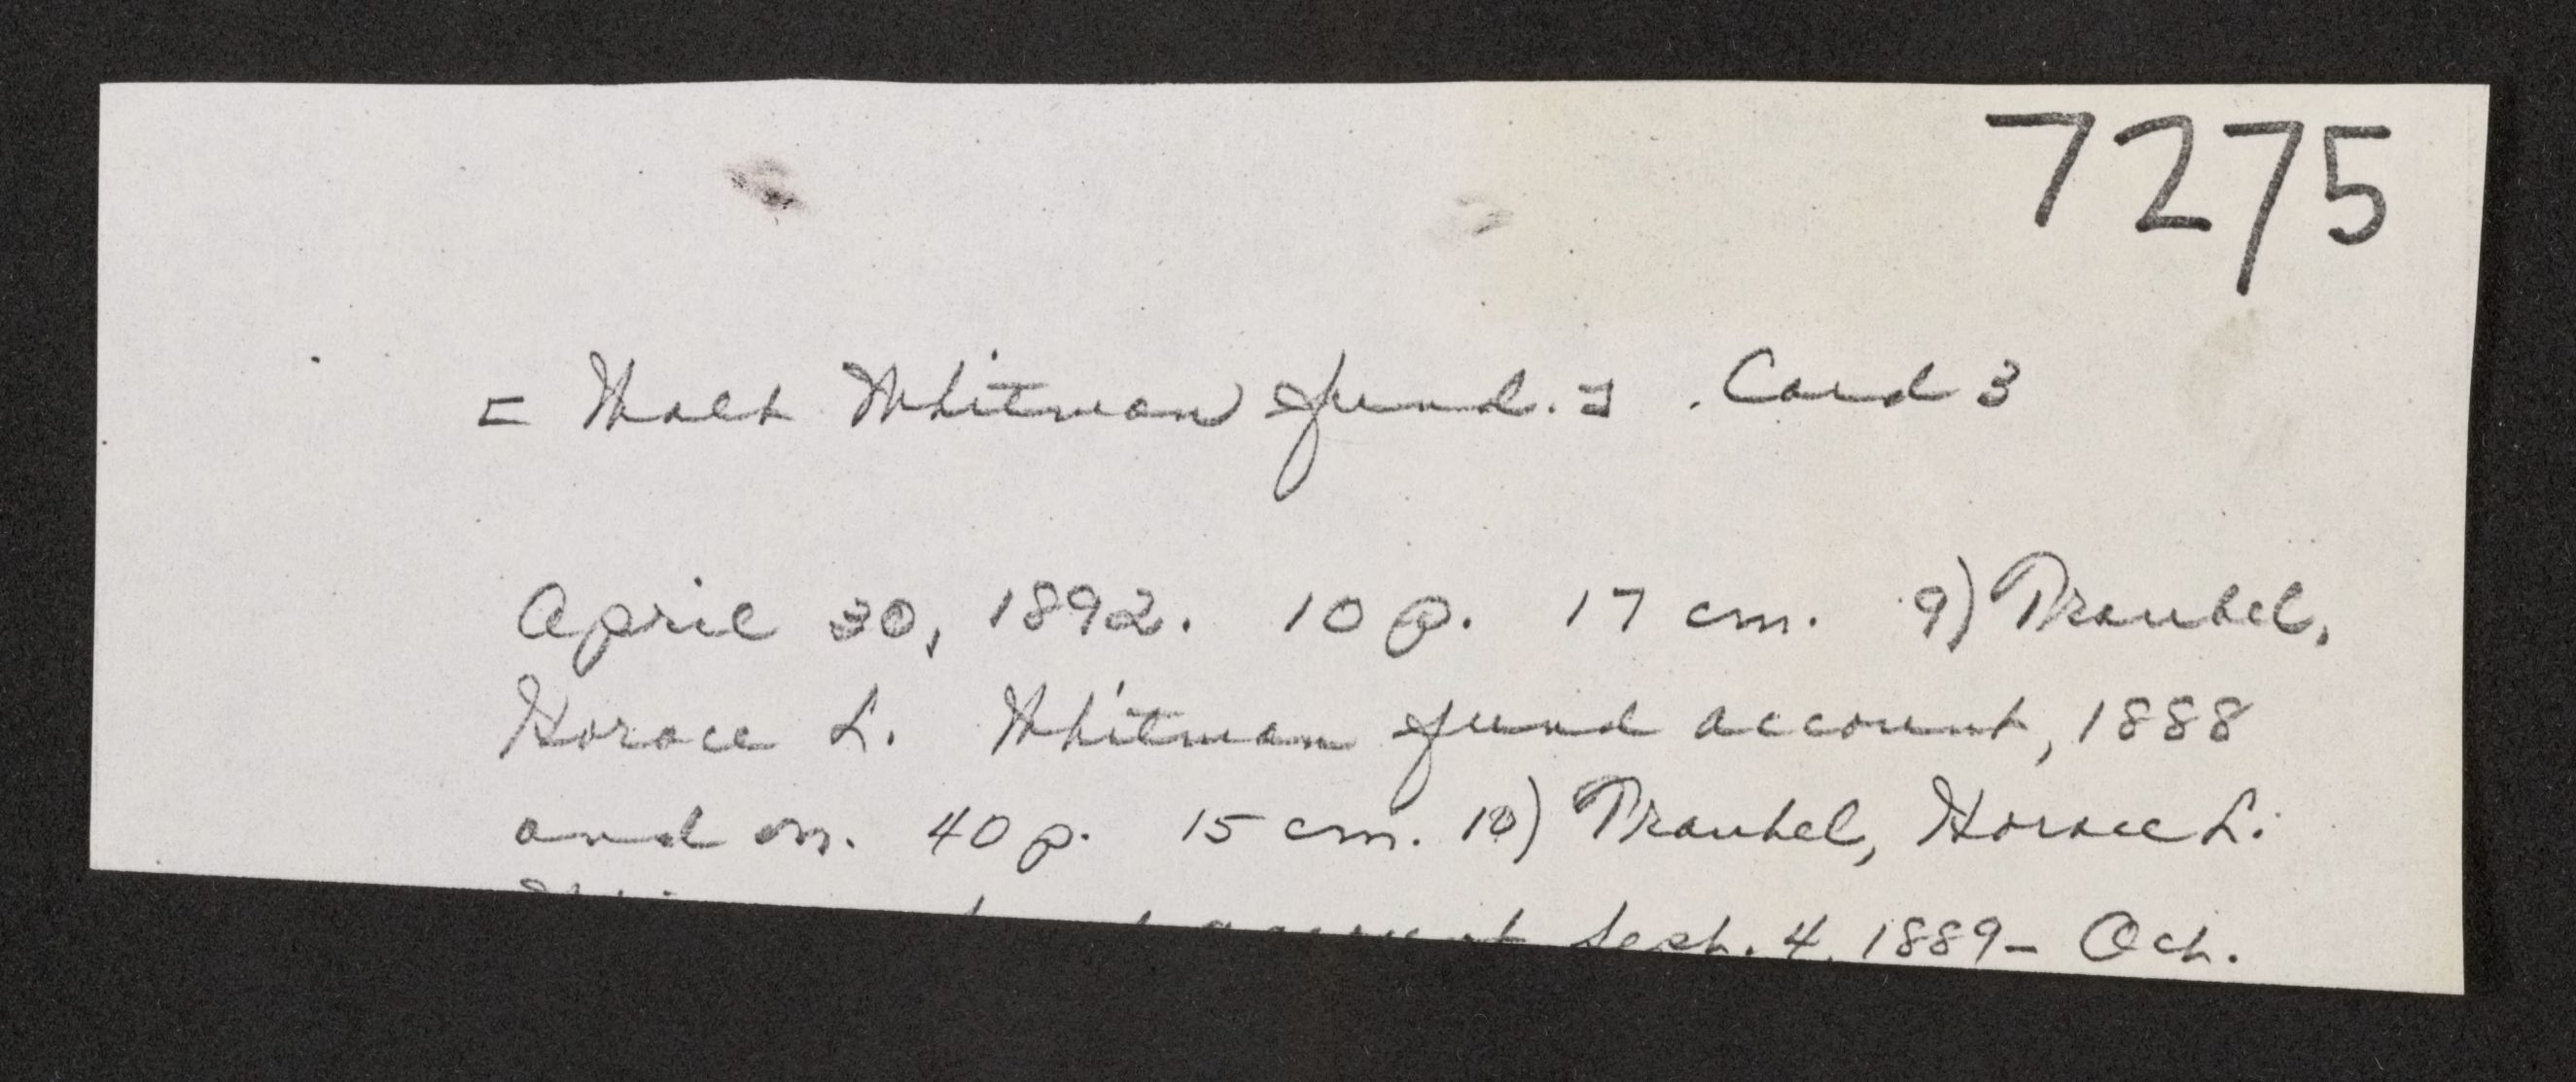 7275
[Walt Whitman fund.] . Card 3
April 30, 1892. 10 p. 17 cm. 9) Traubel,
Horace L. Whitman fund account, 1888
and on. 40 p. 15 cm. 10) Traubel, Horace L.
account Sept. 4, 1889- Oct.